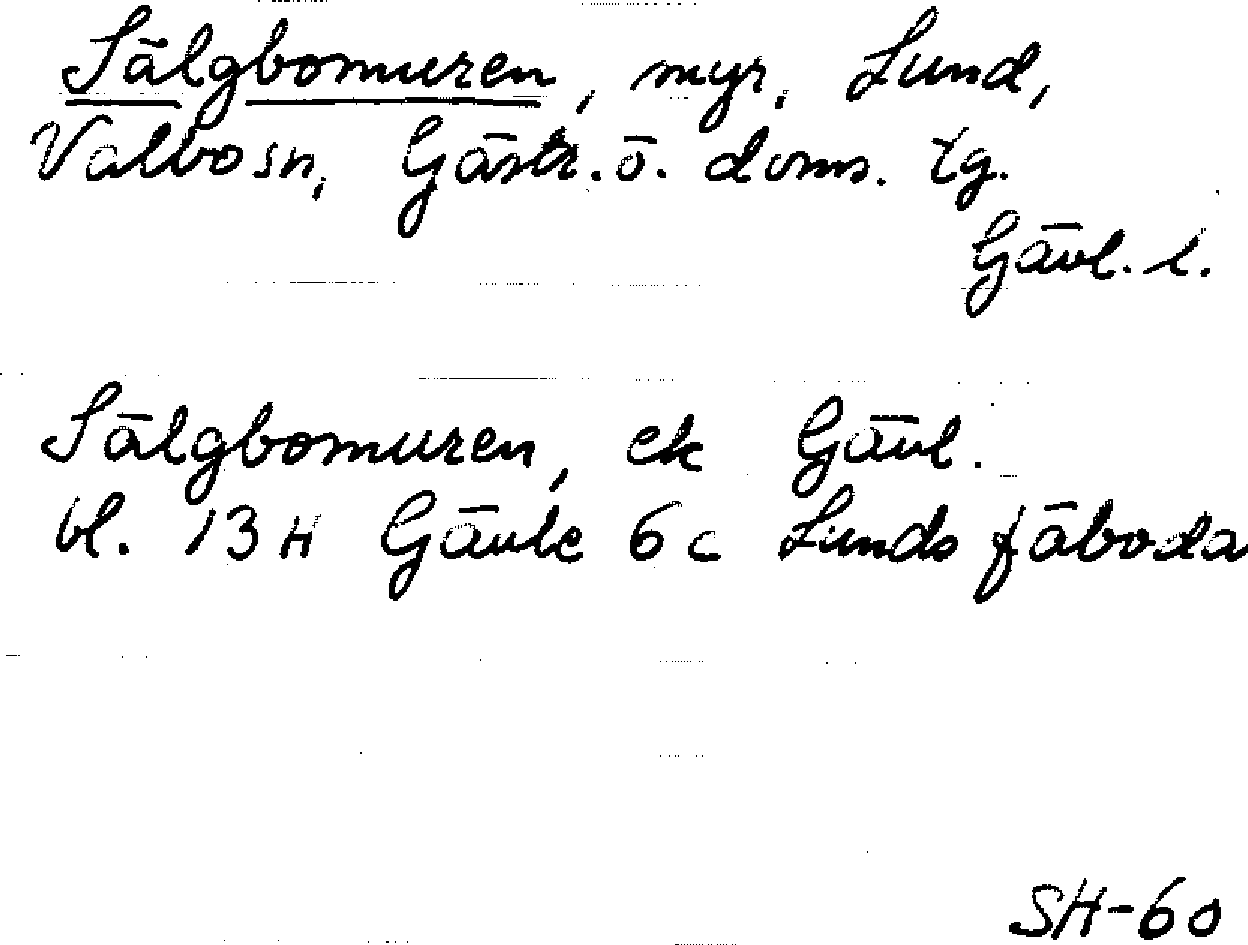 Sälgbomuren, myr, Lund,
Valbo sn, Gästr. ö. doms. tg.
Gävl. l.
Sälgbomuren, ek Gävl.
bl. 13 H Gävle 6 c Lunds fäboda
SH-60